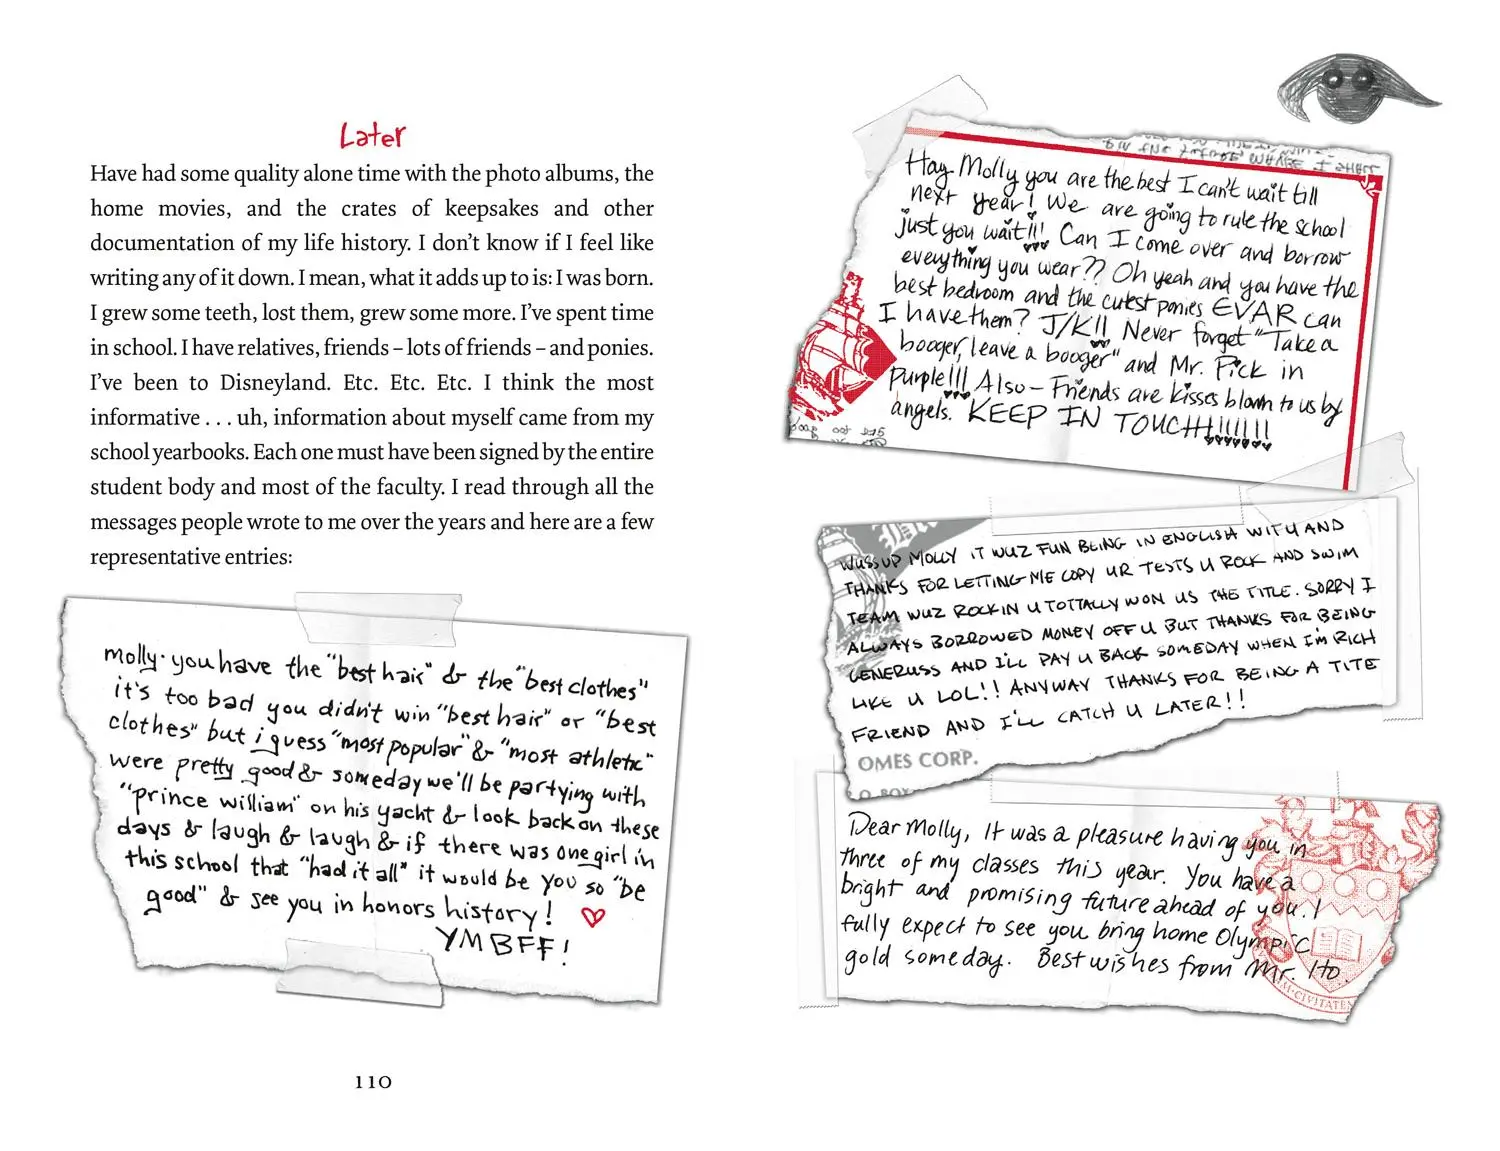 Later
Have had some quality alone time with the photo albums, the
home movies, and the crates of keepsakes and other
documentation of my life history. I don’t know if I feel like
writing any of it down. I mean, what it adds up to is: I was born.
I grew some teeth, lost them, grew some more. I’ve spent time
in school. I have relatives, friends – lots of friends – and ponies.
I’ve been to Disneyland. Etc. Etc. Etc. I think the most
informative . . . uh, information about myself came from my
school yearbooks. Each one must have been signed by the entire
student body and most of the faculty. I read through all the
messages people wrote to me over the years and here are a few
representative entries:
molly. you have the "best hair" & the "best clothes"
it's too bad you didn't win "best hair" or "best
clothes" but i guess "most popular" & "most athletic"
were pretty good & someday we'll be partying with
"prince william" on his yacht & look back on these
days & laugh & laugh & if there was one girl in
this school that "had it all" it would be you so "be
good" & see you in honors history!
YMBFF!
110
Hay Molly you are the best I can't wait till
next year! We are going to rule the school
just you wait!!! Can I come over and borrow
everything you wear?? Oh yeah and you have the
best bedroom and the cutest ponies EVAR can
I have them? J/K!! Never forget "Take a
booger, leave a booger" and Mr. Pick in
Purple!!! Also – Friends are kisses blown to us by
angels. KEEP IN TOUCH!!!!!!!
WUSSUP MOLLY IT WUZ FUN BEING IN ENGLISH WIT U AND
THANKS FOR LETTING ME COPY UR TESTS U ROCK AND SWIM
TEAM WUZ ROCKIN U TOTTALLY WON US THE TITLE. SORRY I
ALWAYS BORROWED MONEY OFF U BUT THANKS FOR BEING
GENERUSS AND I'LL PAY U BACK SOMEDAY WHEN I'M RICH
LIKE U LOL!! ANYWAY THANKS FOR BEING A TITE
FRIEND AND I'LL CATCH U LATER!!
OMES CORP.
O. BOX
Dear Molly, It was a pleasure having you in
three of my classes this year. You have a
bright and promising future ahead of you. I
fully expect to see you bring home Olympic
gold someday. Best wishes from Mr. Ito
M•CIVITATEN